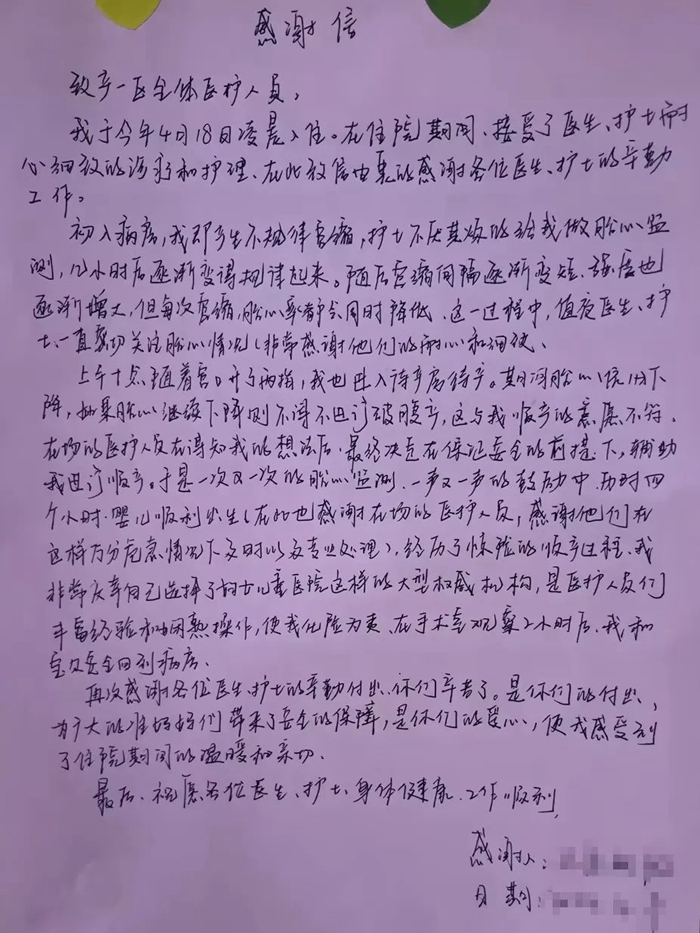 感谢信
致产一医全体医护人员,
我于今年4月18日凌晨入住。在住院期间、接受了医生、护士耐
心细致的治疗和护理、在此致信由衷的感谢各位医生、护士的辛勤
工作。
初入病房,我即产生不规律宫缩,护士不厌其烦的给我做胎心监
测,几小时后逐渐变得规律起来。随后宫缩间隔逐渐变短、强度也
逐渐增大,但每次宫缩,胎心率都会同时降低、这一过程中,值夜医生、护
士、一直密切关注胎心情况(非常感谢他们的耐心和细致、
上午十点随着宫口开了两指,我也进入待产房待产。期间胎心依旧下
降,如果胎心继续下降则不得不进行破腹产,这与我顺产的意愿不符、
在场的医护人员在得知我的想法后、最终决定在保证安全的前提下,辅助
我进行顺产。于是一次又一次的胎心监测、一声又一声的鼓励中、历时四
个小时、婴儿顺利出生(在此也感谢在场的医护人员,感谢他们在
这样万分危急情况下及时以及专业处理)、经历了惊险的顺产过程、我
非常庆幸自己选择了妇女儿童医院这样的大型权威机构,是医护人员们
丰富经验和娴熟操作,使我化险为夷、在手术室观察2小时后、我和
宝贝安全回到病房、
再次感谢各位医生、护士的辛勤付出、你们辛苦了。是你们的付出,
为广大的准妈妈们带来了安全的保障,是你们的爱心,使我感受到
了住院期间的温暖和亲切、
最后、祝愿各位医生、护士、身体健康、工作顺利,
感谢人:
日期: